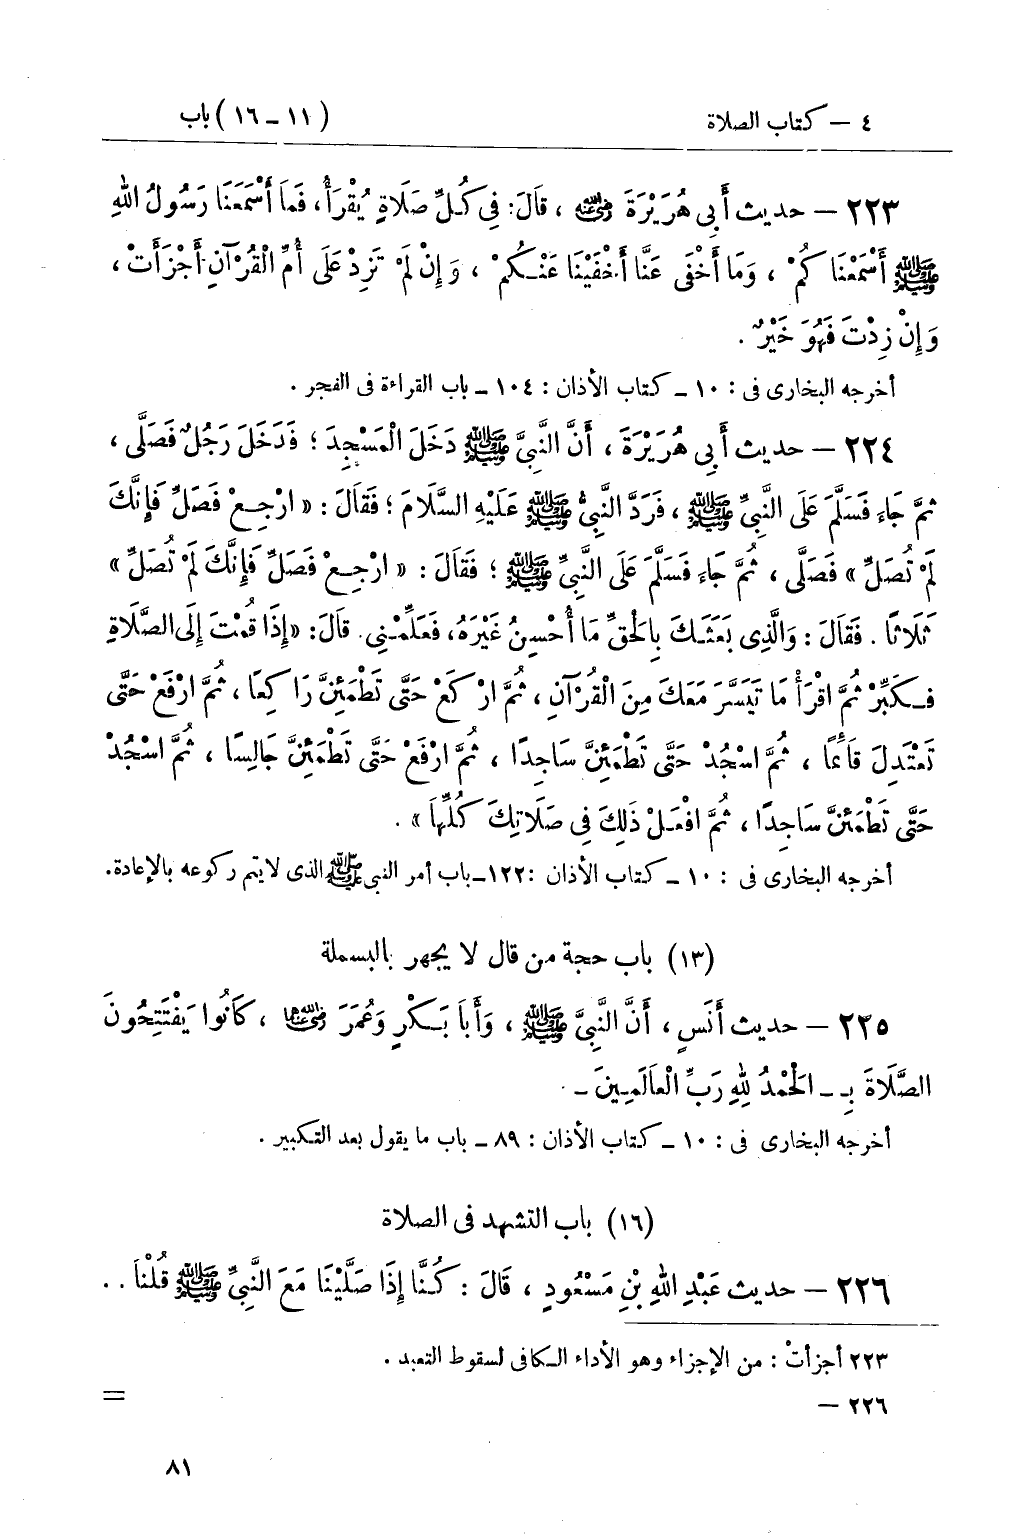 ٤ — كتاب الصلاة (١١ - ١٦) باب
٢٢٣ — حديث أَبِي هُرَيْرَةَ رضي الله عنه ، قَالَ: فِي كُلِّ صَلَاةٍ يُقْرَأُ، فَمَا أَسْمَعَنَا رَسُولُ اللهِ
ﷺ أَسْمَعْنَاكُمْ ، وَمَا أَخْفَى عَنَّا أَخْفَيْنَا عَنْكُمْ ، وَإِنْ لَمْ تَزِدْ عَلَى أُمِّ الْقُرْآنِ أَجْزَأَتْ ،
وَإِنْ زِدْتَ فَهُوَ خَيْرٌ .
أخرجه البخارى فى : ١٠ ـ كتاب الأذان : ١٠٤ ـ باب القراءة فى الفجر .
٢٢٤ — حديث أَبِي هُرَيْرَةَ ، أَنَّ النَّبِيَّ ﷺ دَخَلَ الْمَسْجِدَ ؛ فَدَخَلَ رَجُلٌ فَصَلَّى ،
ثمَّ جَاءَ فَسَلَّمَ عَلَى النَّبِيِّ ﷺ ، فَرَدَّ النَّبِيُّ ﷺ عَلَيْهِ السَّلَامَ ؛ فَقَالَ : « ارْجِعْ فَصَلِّ فَإِنَّكَ
لَمْ تُصَلِّ » فَصَلَّى ، ثُمَّ جَاءَ فَسَلَّمَ عَلَى النَّبِيِّ ﷺ ؛ فَقَالَ : « ارْجِعْ فَصَلِّ فَإِنَّكَ لَمْ تُصَلِّ »
ثَلَاثًا . فَقَالَ : وَالَّذِى بَعَثَكَ بِالْحَقِّ مَا أُحْسِنُ غَيْرَهُ، فَعَلِّمْنِي. قَالَ: «إِذَا قُمْتَ إِلَى الصَّلَاةِ
فَكَبِّرْ ثُمَّ اقْرَأْ مَا تَيَسَّرَ مَعَكَ مِنَ الْقُرْآنِ ، ثُمَّ ارْكَعْ حَتَّى تَطْمَئِنَّ رَاكِعًا ، ثُمَّ ارْفَعْ حَتَّى
تَعْتَدِلَ قَائِمًا ، ثُمَّ اسْجُدْ حَتَّى تَطْمَئِنَّ سَاجِدًا ، ثُمَّ ارْفَعْ حَتَّى تَطْمَئِنَّ جَالِسًا ، ثُمَّ اسْجُدْ
حَتَّى تَطْمَئِنَّ سَاجِدًا ، ثُمَّ افْعَلْ ذَلِكَ فِي صَلَاتِكَ كُلِّهَا » .
أخرجه البخارى فى : ١٠ ـ كتاب الأذان :١٢٢ـ باب أمر النبى ﷺ الذى لا يتم ركوعه بالإعادة.
(١٣) باب حجة من قال لا يجهر بالبسملة
٢٢٥ — حديث أَنَسٍ ، أَنَّ النَّبِيَّ ﷺ ، وَأَبَا بَكْرٍ وَعُمَرَ رضي الله عنهما ، كَانُوا يَفْتَتِحُونَ
الصَّلَاةَ بِـ ـ الْحَمْدُ لِلهِ رَبِّ الْعَالَمِينَ ـ
أخرجه البخارى فى : ١٠ ـ كتاب الأذان : ٨٩ ـ باب ما يقول بعد التكبير .
(١٦) باب التشهد فى الصلاة
٢٢٦ — حديث عَبْدِ اللهِ بْنِ مَسْعُودٍ ، قَالَ : كُنَّا إِذَا صَلَّيْنَا مَعَ النَّبِيِّ ﷺ قُلْنَا . .
٢٢٣ أجزأتْ : من الإجزاء وهو الأداء الكافى لسقوط التعبد .
٢٢٦ — =
٨١